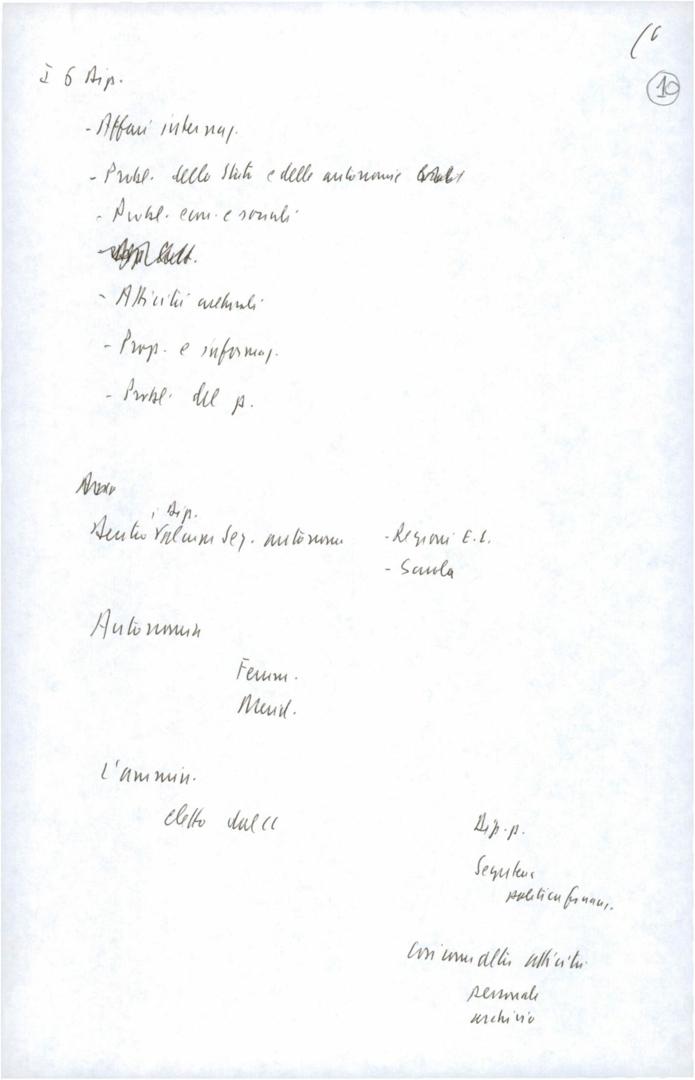 10
I 6 Dip.
- Affari internaz.
- Probl. dello Stato e delle autonomie
- Probl. econ. e sociali
- Attività culturali
- Prop. e informaz.
- Probl. del p.
Dip.
Dentro Sez. autonome - Regioni E.L.
- Scuola
Autonomia
Femm.
Merid.
L'ammin.
eletto dal CC
Dip. p.
Segreteria
politica finanz.
Così come altre attività
personale
archivio